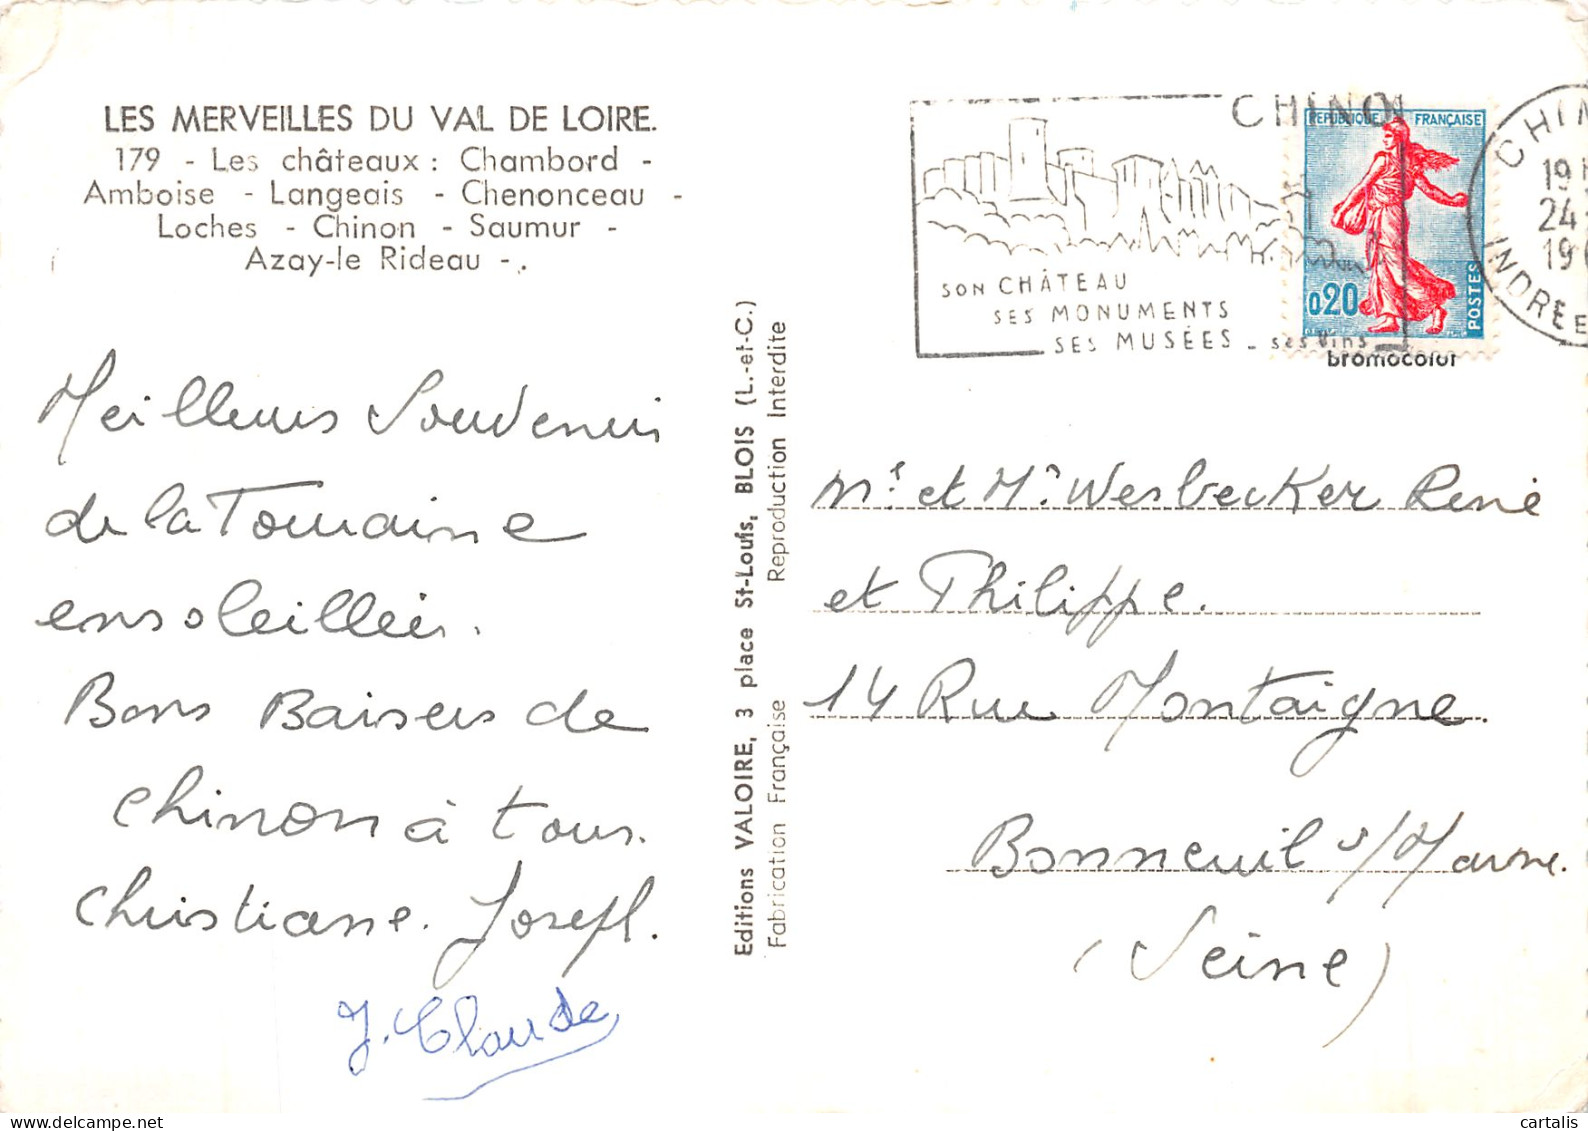 LES MERVEILLES DU VAL DE LOIRE.
179 - Les châteaux : Chambord -
Amboise - Langeais - Chenonceau -
Loches - Chinon - Saumur -
Azay-le Rideau -.
Meilleurs Souvenirs
de la Touraine
ensoleillée.
Bons Baisers de
Chinon à tous.
Christiane. Joseph.
J. Claude
Editions VALOIRE, 3 place St-Louis, BLOIS (L.-et-C.)
Fabrication Française Reproduction Interdite
CHINO
SON CHÂTEAU
SES MONUMENTS
SES MUSÉES - ses vins
REPUBLIQUE FRANÇAISE
0,20
POSTES
CHIN
19 H
24
19
INDRE E
bromocolor
Mr. et Mr. Wesbecker René
et Philippe.
14 Rue Montaigne.
Bonneuil s/Marne.
(Seine)
cartalis